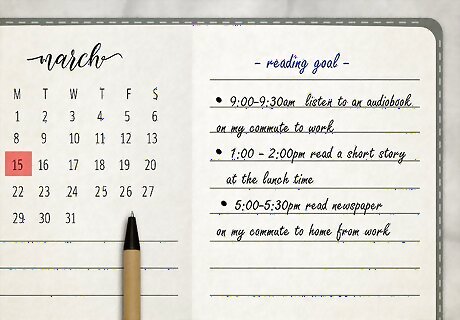 march
M T W T F S
1 2 3 4 5 6
8 9 10 11 12 13
15 16 17 18 19 20
22 23 24 25 26 27
29 30 31
- reading goal -
• 9:00-9:30am listen to an audiobook
on my commute to work
• 1:00 - 2:00pm read a short story
at the lunch time
• 5:00-5:30pm read newspaper
on my commute to home from work